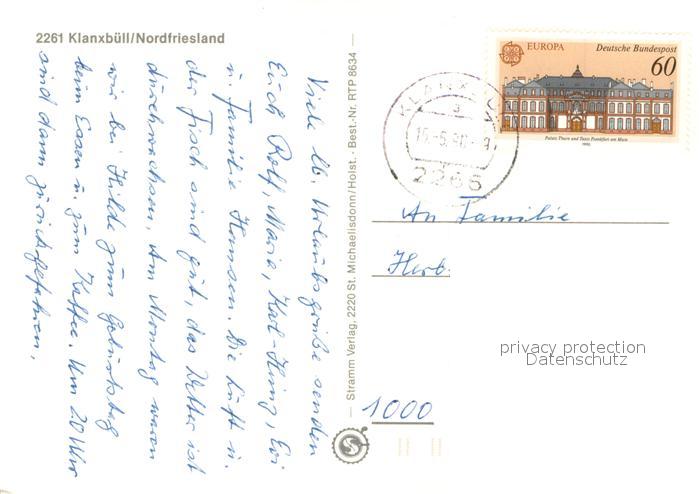 2261 Klanxbüll/Nordfriesland
Viele lb. Urlaubsgrüße senden
Euch Rolf, Maria, Karl-Heinz, Evi
u. Familie Hansen. Die Luft u.
der Fisch sind gut, das Wetter ist
durchwachsen. Am Montag waren
wir bei Hilde zum Geburtstag
beim Essen u. zum Kaffee. Um 20 Uhr
sind dann zurückgefahren.
Stramm Verlag, 2220 St. Michaelisdonn/Holst. · Best.-Nr. RTP 8634
EUROPA Deutsche Bundespost
60
Palais Thurn und Taxis Frankfurt am Main
1990
2266
An Familie
Herb.
privacy protection
Datenschutz
1000